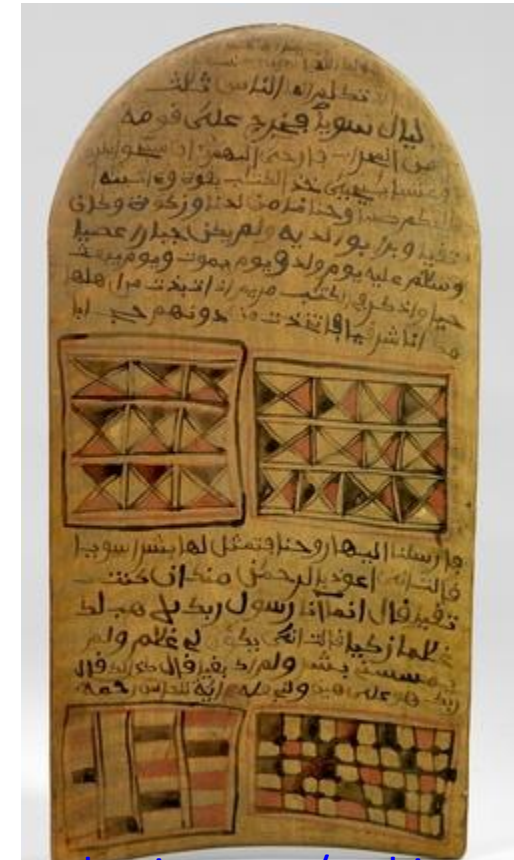 تكلم الناس ثلث
ليال سويا فخرج على قومه
من المحراب فاوحى اليهم ان سبحوا بكرة
وعشيا ييحيى خذ الكتب بقوة وءاتينه
الحكم صبيا وحنانا من لدنا وزكوة وكان
تقيا وبرا بولديه ولم يكن جبارا عصيا
وسلم عليه يوم ولد ويوم يموت ويوم يبعث
حيا واذكر في الكتب مريم اذ انتبذت من اهلها
مكانا شرقيا فاتخذت من دونهم حجابا
فارسلنا اليها روحنا فتمثل لها بشرا سويا
قالت اني اعوذ بالرحمن منك ان كنت
تقيا قال انما انا رسول ربك لاهب لك
غلما زكيا قالت انى يكون لي غلم ولم
يمسسني بشر ولم اك بغيا قال كذلك قال
ربك هو علي هين ولنجعله ءاية للناس ورحمة